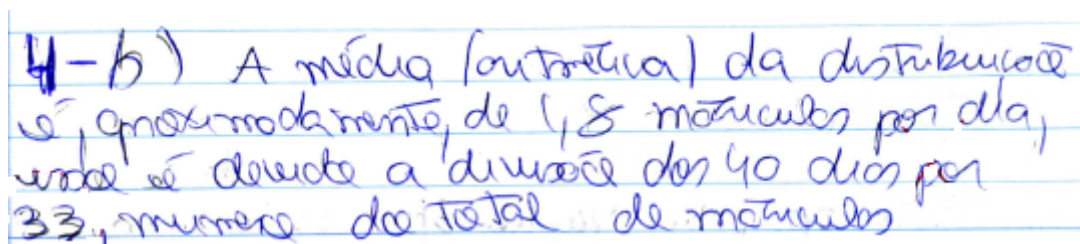 4-b) A média (aritmética) da distribuição
é, aproximadamente, de 1,8 matrículas por dia,
é devido a divisão dos 40 dias por
33, numero do total de matriculas